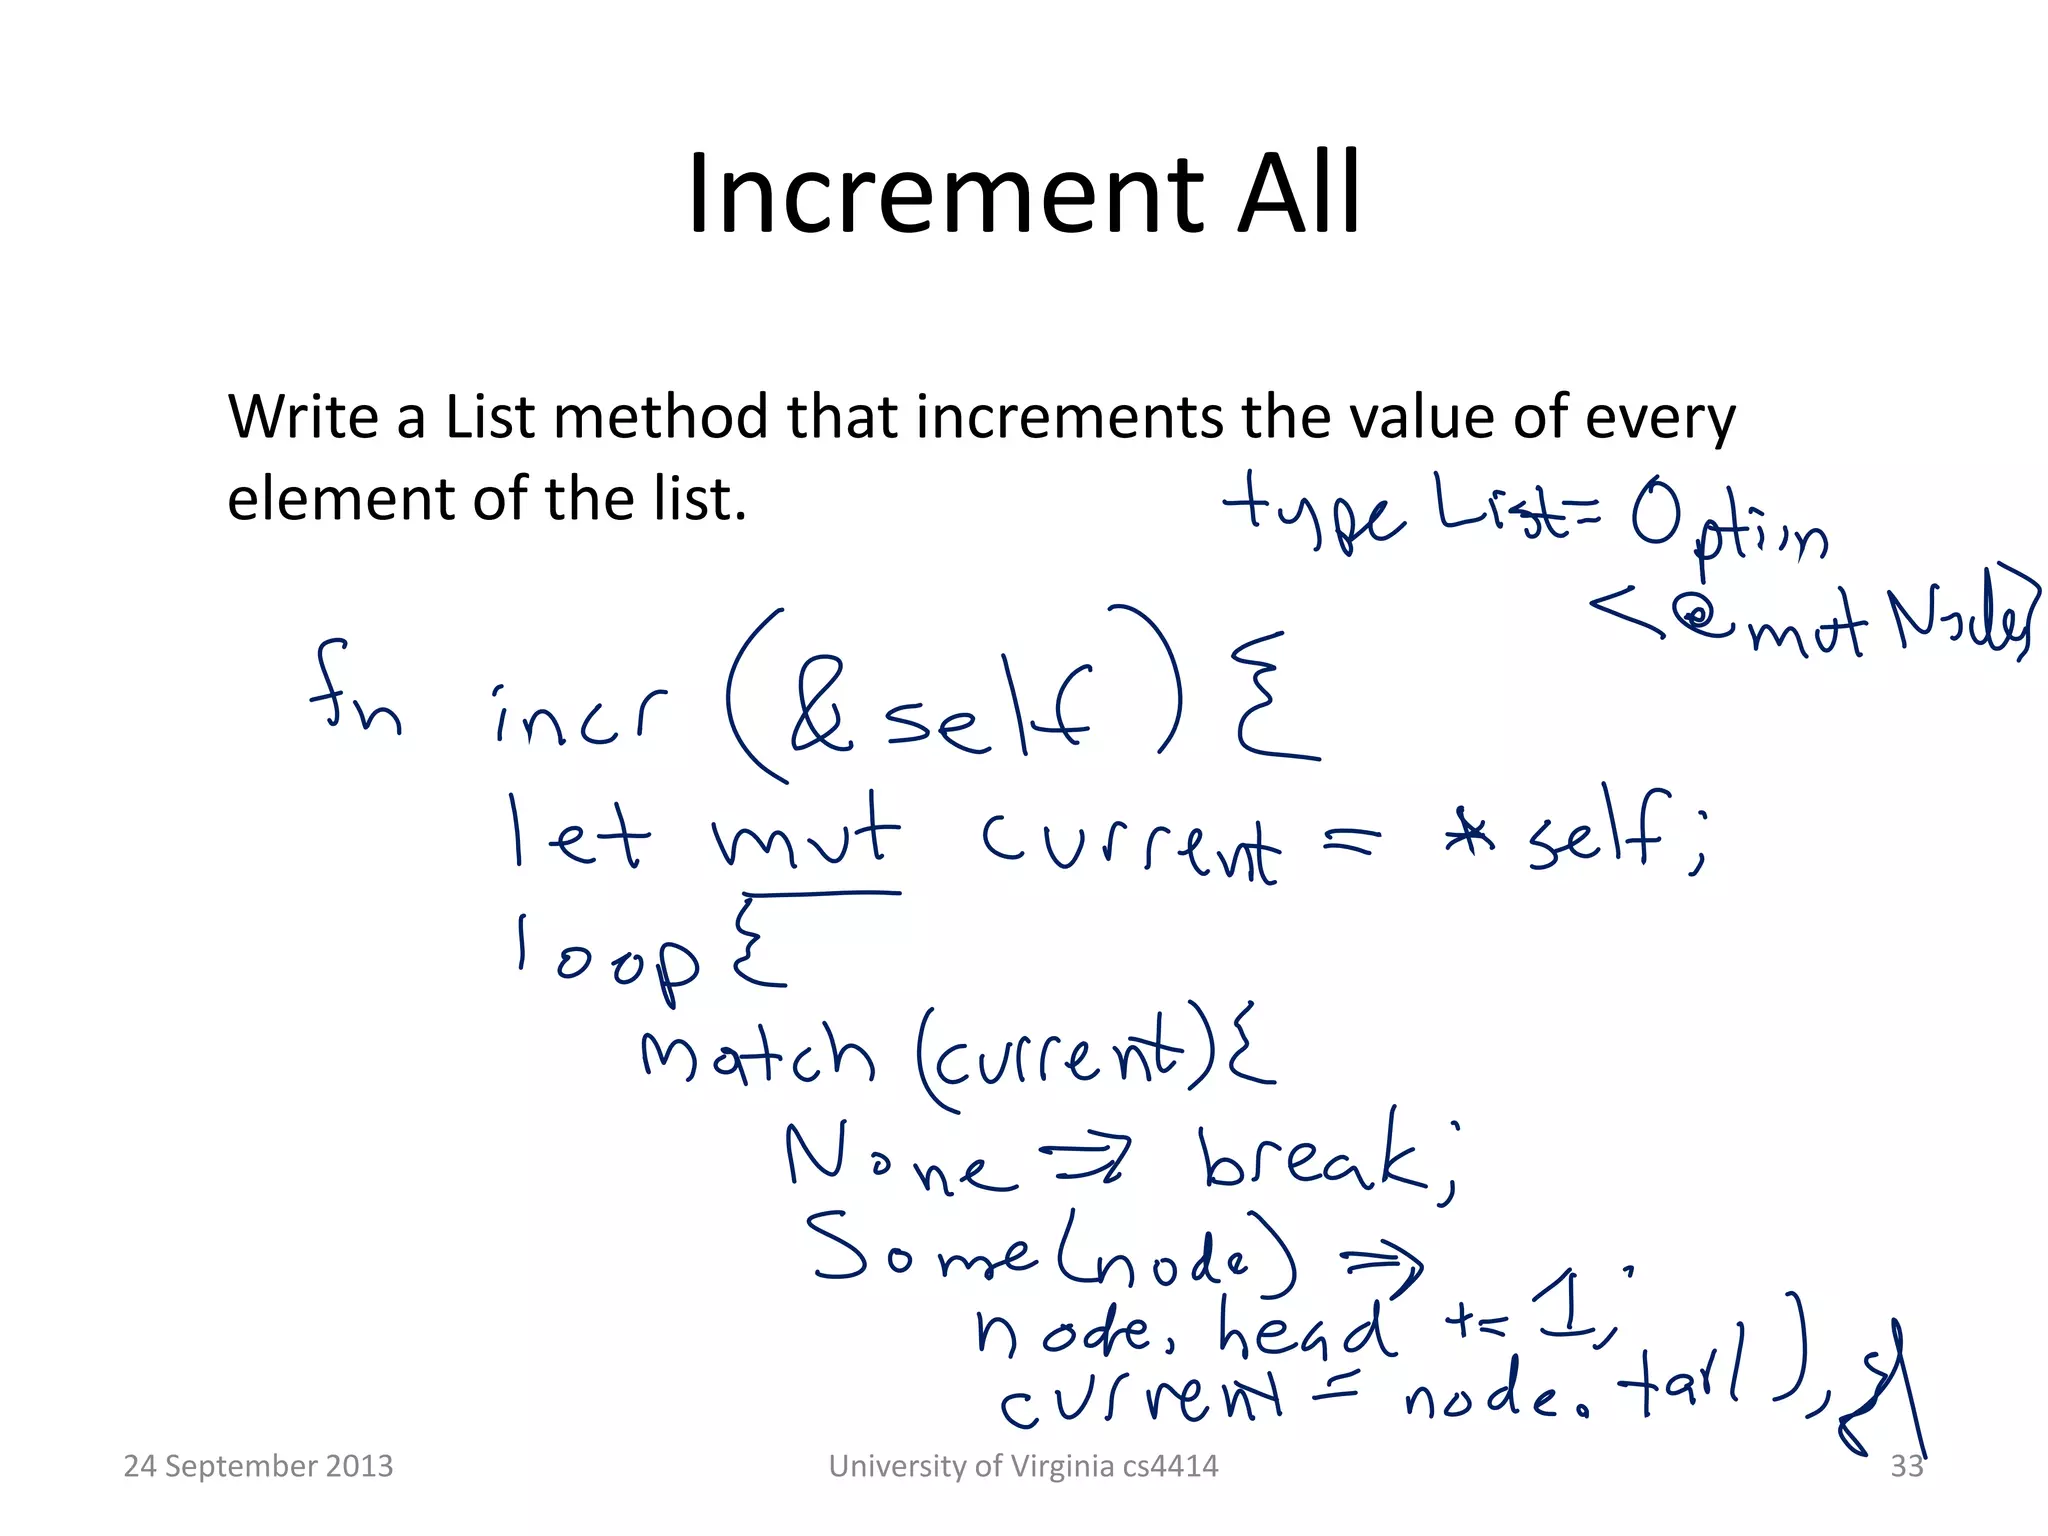 Increment All
Write a List method that increments the value of every
element of the list.
type List = Option
<@mut Node>
fn incr (&self) {
let mut current = *self;
loop {
match (current) {
None => break;
Some(node) =>
node.head += 1;
current = node.tail),}
24 September 2013
University of Virginia cs4414
33